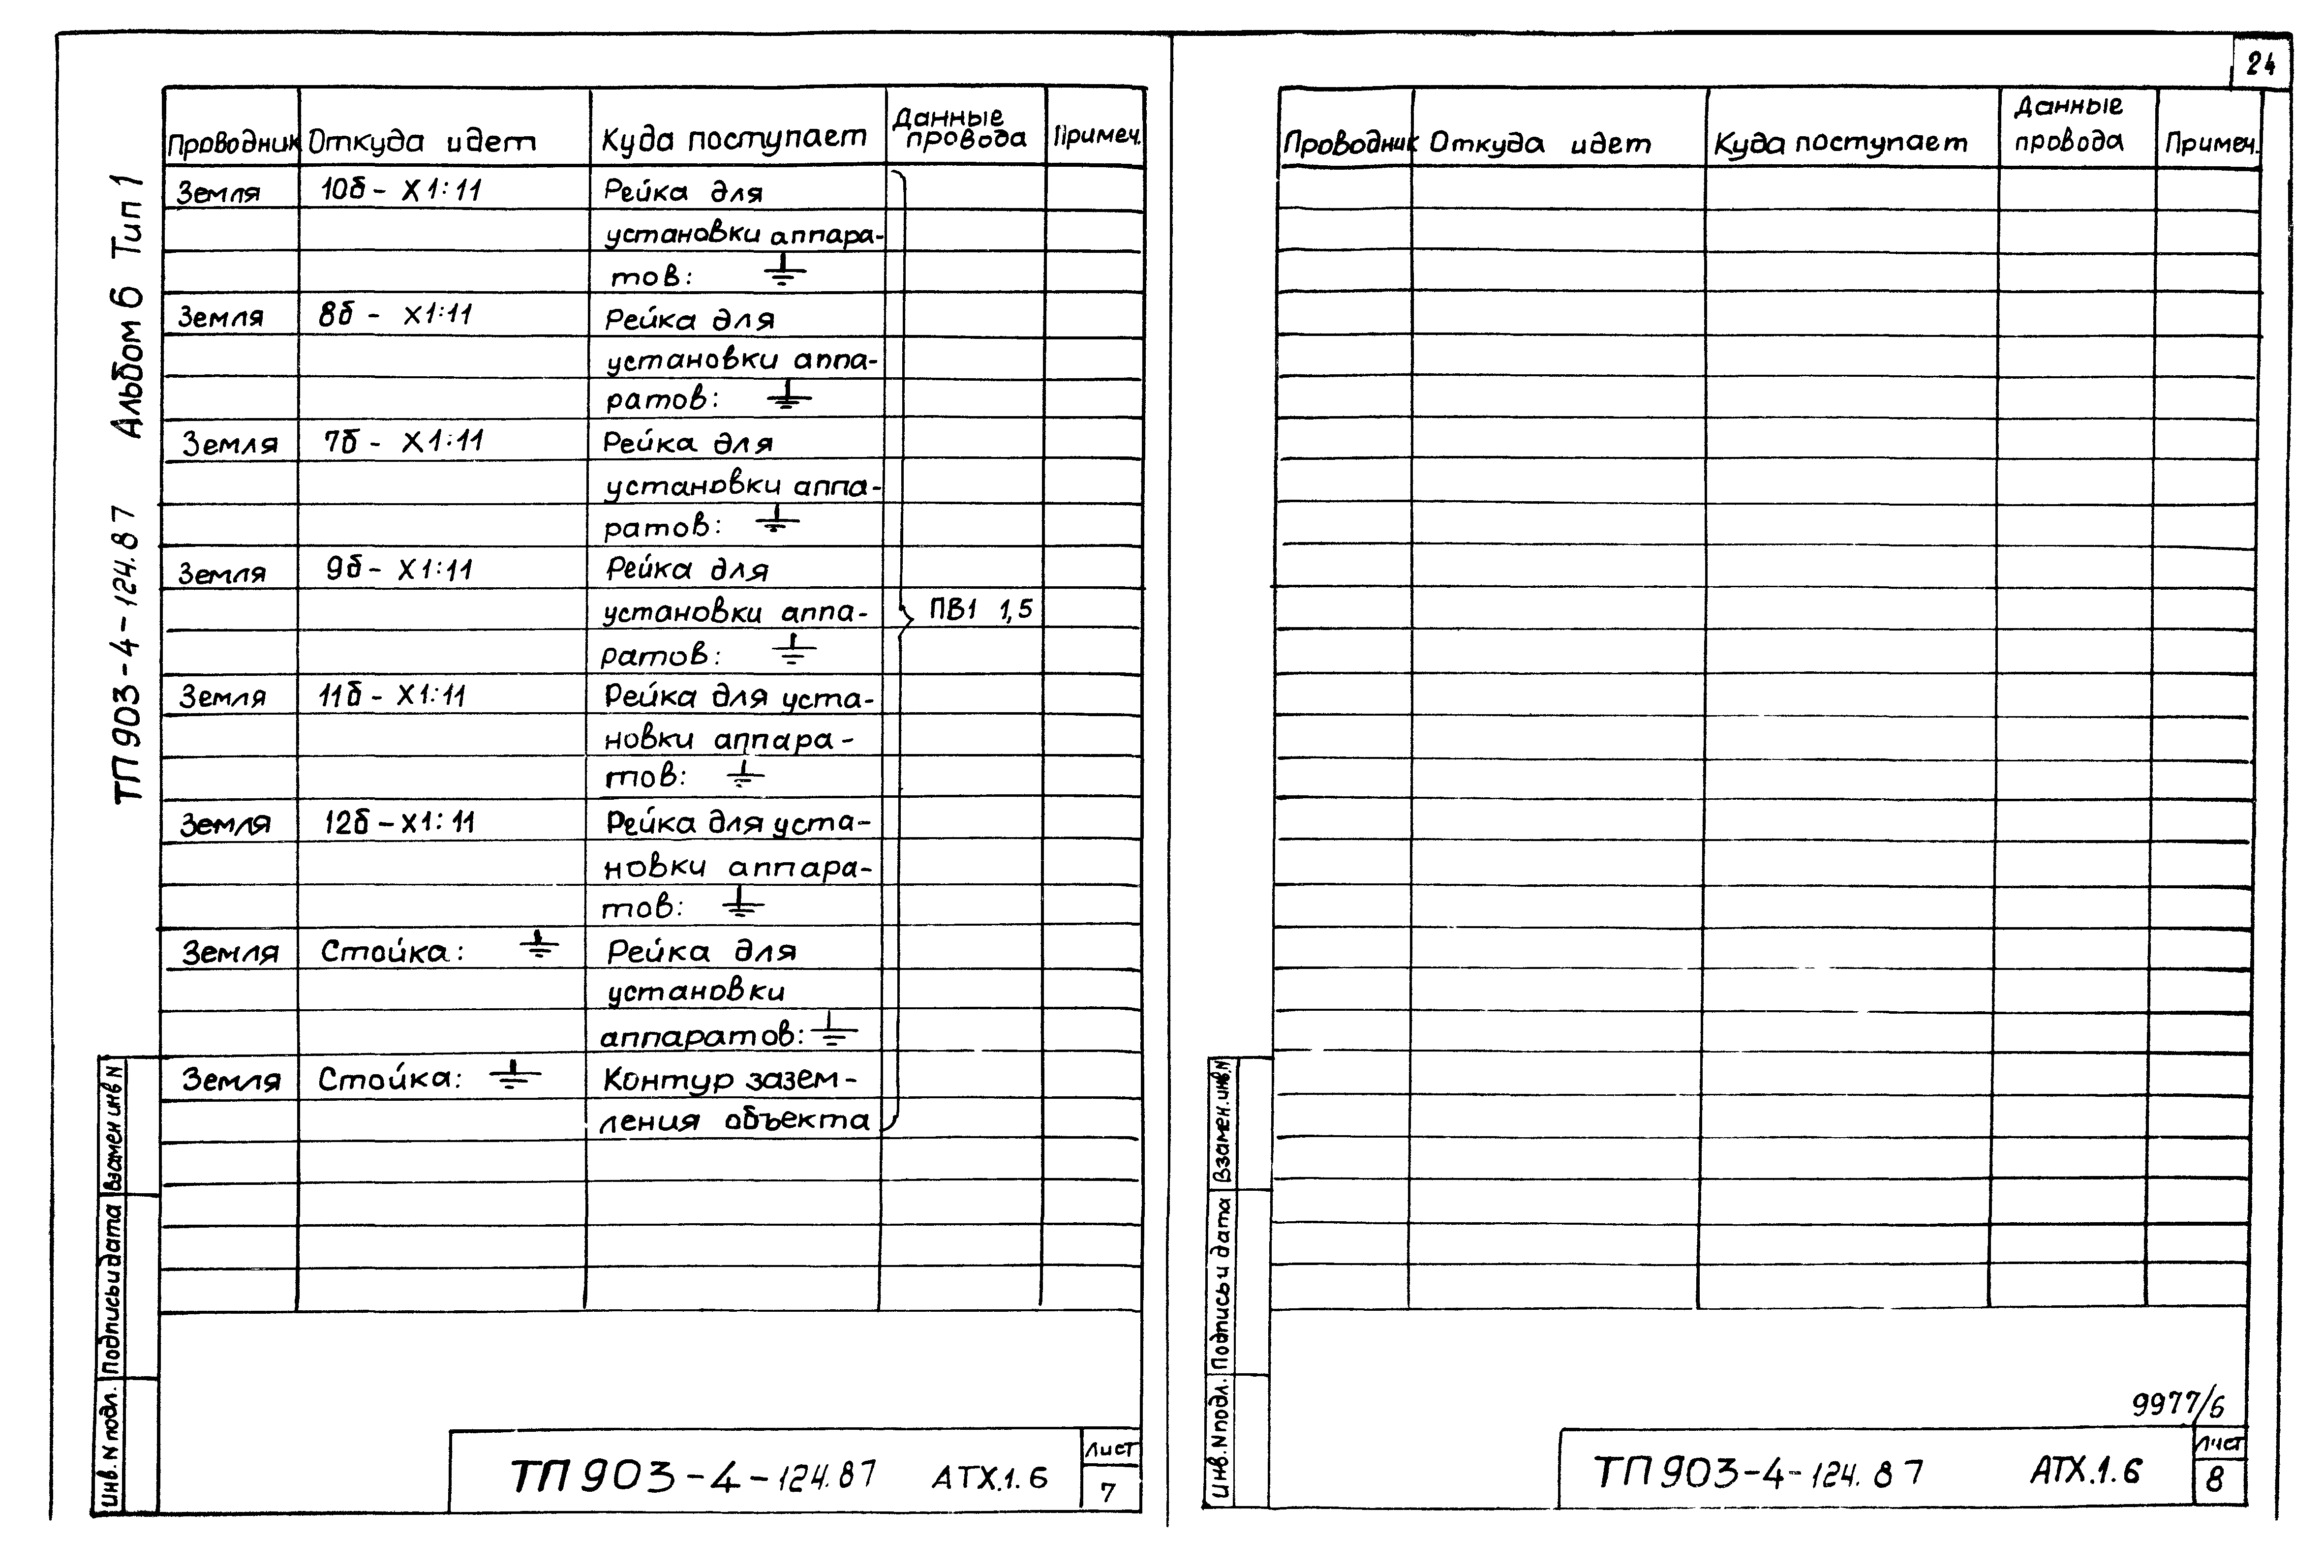 24
ТП 903-4-124.87 Альбом 6 Тип 1
Проводник Откуда идет Куда поступает Данные провода Примеч.
Земля 10б - X1:11 Рейка для
установки аппара-
тов: ⏚
Земля 8б - X1:11 Рейка для
установки аппа-
ратов: ⏚
Земля 7б - X1:11 Рейка для
установки аппа-
ратов: ⏚
Земля 9б - X1:11 Рейка для
установки аппа- ПВ1 1,5
ратов: ⏚
Земля 11б - X1:11 Рейка для уста-
новки аппара-
тов: ⏚
Земля 12б - X1:11 Рейка для уста-
новки аппара-
тов: ⏚
Земля Стойка: ⏚ Рейка для
установки
аппаратов: ⏚
Земля Стойка: ⏚ Контур зазем-
ления объекта
Инв. N подл. Подпись и дата Взамен инв N
ТП 903-4-124.87 АТХ.1.6 Лист 7
Проводник Откуда идет Куда поступает Данные провода Примеч.
Инв. N подл. Подпись и дата Взамен. инв. N
9977/6
ТП 903-4-124.87 АТХ.1.6 Лист 8